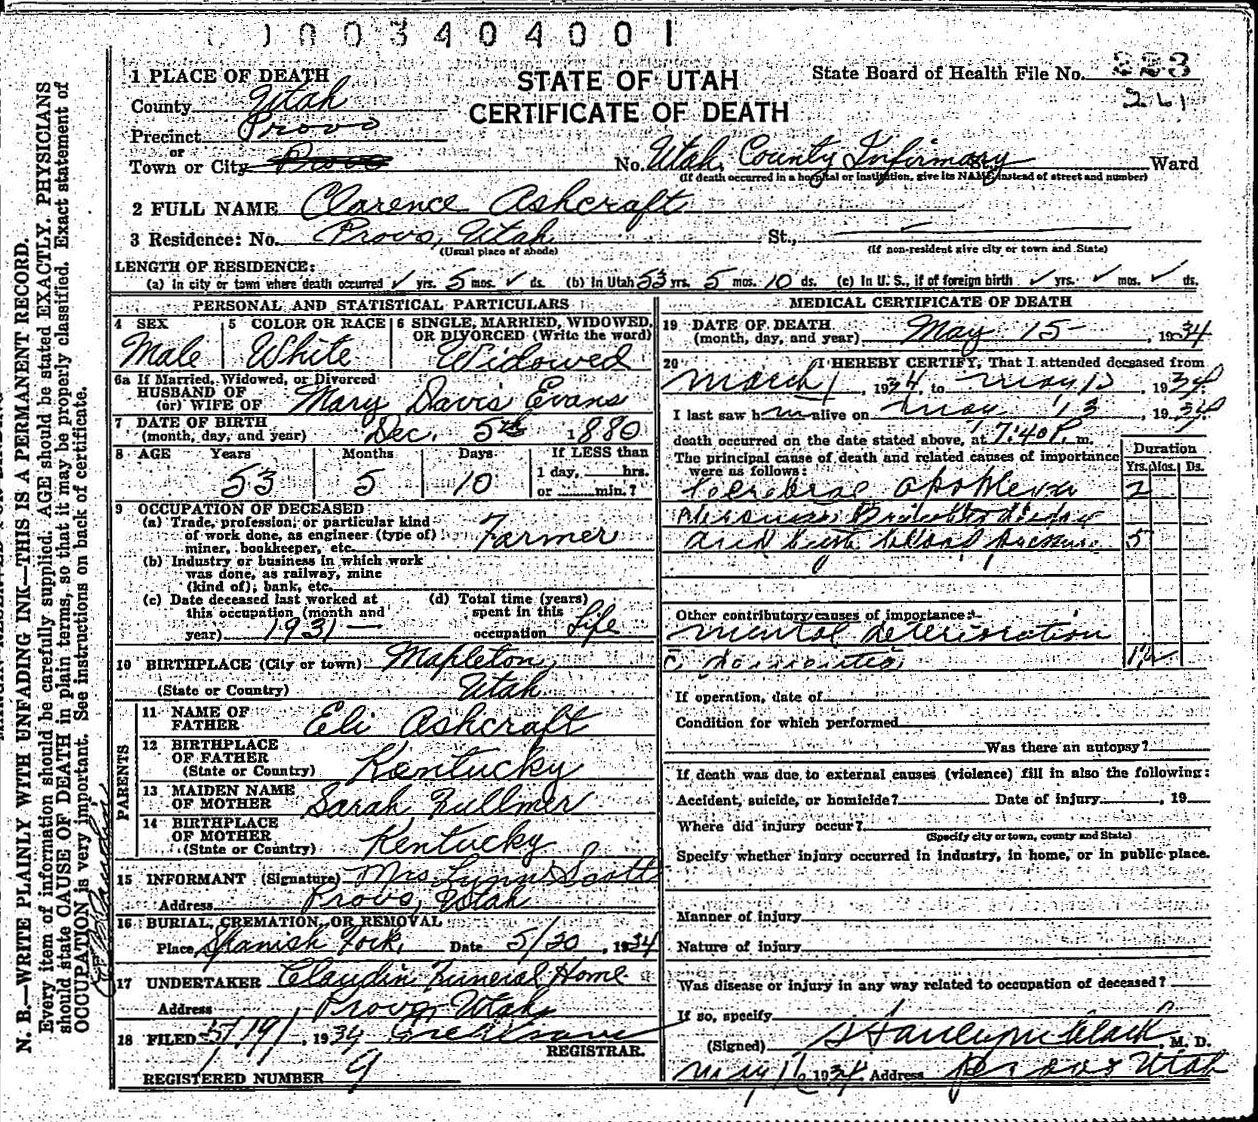 003404001
STATE OF UTAH
CERTIFICATE OF DEATH
State Board of Health File No. 223
261
1 PLACE OF DEATH
County Utah
Precinct Provo
or
Town or City Provo
No. Utah County Infirmary St., Ward
(If death occurred in a hospital or institution, give its NAME instead of street and number)
2 FULL NAME Clarence Ashcraft
3 Residence: No. Provo, Utah St.,
(Usual place of abode) (If non-resident give city or town and State)
LENGTH OF RESIDENCE:
(a) In city or town where death occurred ✓ yrs. 5 mos. ✓ ds. (b) In Utah 53 yrs. 5 mos. 10 ds. (c) In U. S., if of foreign birth ✓ yrs. ✓ mos. ✓ ds.
PERSONAL AND STATISTICAL PARTICULARS
4 SEX
Male
5 COLOR OR RACE
White
6 SINGLE, MARRIED, WIDOWED,
OR DIVORCED (Write the word)
Widowed
6a If Married, Widowed, or Divorced
HUSBAND OF
(or) WIFE OF Mary Davis Evans
7 DATE OF BIRTH
(month, day, and year) Dec. 5th 1880
8 AGE Years Months Days If LESS than
53 5 10 1 day, hrs.
or min.?
9 OCCUPATION OF DECEASED
(a) Trade, profession, or particular kind
of work done, as engineer (type of)
miner, bookkeeper, etc. Farmer
(b) Industry or business in which work
was done, as railway, mine
(kind of), bank, etc.
(c) Date deceased last worked at
this occupation (month and
year) 1931
(d) Total time (years)
spent in this
occupation Life
10 BIRTHPLACE (City or town) Mapleton,
(State or Country) Utah
PARENTS
11 NAME OF
FATHER Eli Ashcraft
12 BIRTHPLACE
OF FATHER
(State or Country) Kentucky
13 MAIDEN NAME
OF MOTHER Sarah Fullmer
14 BIRTHPLACE
OF MOTHER
(State or Country) Kentucky
15 INFORMANT (Signature) Mrs Lynn Scott
Address Provo, Utah
16 BURIAL, CREMATION, OR REMOVAL
Place Spanish Fork, Date 5/20, 1934
17 UNDERTAKER Claudin Funeral Home
Address Provo, Utah
18 FILED 5/19/, 1934
REGISTRAR.
REGISTERED NUMBER 9
MEDICAL CERTIFICATE OF DEATH
19 DATE OF DEATH
(month, day, and year) May 15, 1934
20 I HEREBY CERTIFY, That I attended deceased from
March 1, 1934, to May 15, 1934
I last saw him alive on May 13, 1934
death occurred on the date stated above, at 7:40 P. m.
The principal cause of death and related causes of importance
were as follows:
Duration
Yrs. Mos. Ds.
Cerebral apoplexy 2
and high blood pressure 5
Other contributory causes of importance:
Mental deterioration
If operation, date of
Condition for which performed
Was there an autopsy?
If death was due to external causes (violence) fill in also the following:
Accident, suicide, or homicide? Date of injury, 19
Where did injury occur?
(Specify city or town, county and State)
Specify whether injury occurred in industry, in home, or in public place.
Manner of injury
Nature of injury
Was disease or injury in any way related to occupation of deceased?
If so, specify
(Signed) Stanley M Clark M. D.
May 16 1934 Address Provo Utah
N. B.—WRITE PLAINLY WITH UNFADING INK—THIS IS A PERMANENT RECORD.
Every item of information should be carefully supplied. AGE should be stated EXACTLY. PHYSICIANS
should state CAUSE OF DEATH in plain terms, so that it may be properly classified. Exact statement of
OCCUPATION is very important. See instructions on back of certificate.